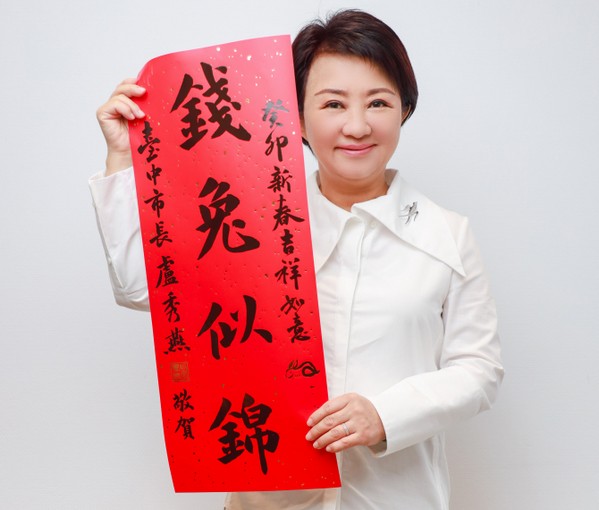 癸卯新春吉祥如意
錢兔似錦
臺中市長盧秀燕
敬賀